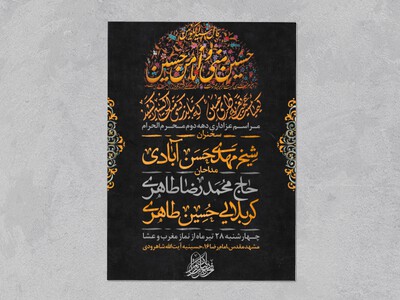 حسین منی و انا من حسین
مراسم عزاداری دهه دوم محرم الحرام
سخنران
شیخ مهدی حسن آبادی
مداحان
حاج محمدرضا طاهری
کربلایی حسین طاهری
چهارشنبه ۲۸ تیرماه از نماز مغرب و عشا
مشهد مقدس، امام رضا ۱۶، حسینیه آیت الله شاهرودی